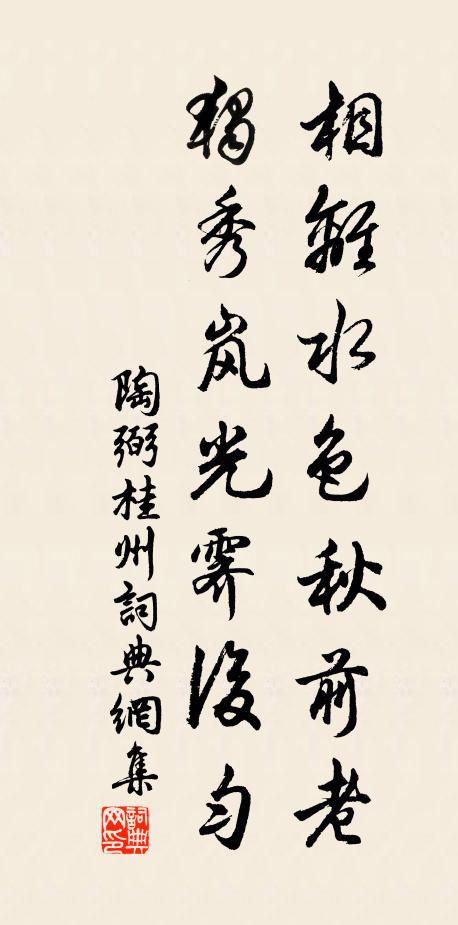 相離水色秋前老
獨秀岚光霽後勻
陶弼桂州詞典網集
詞典網印